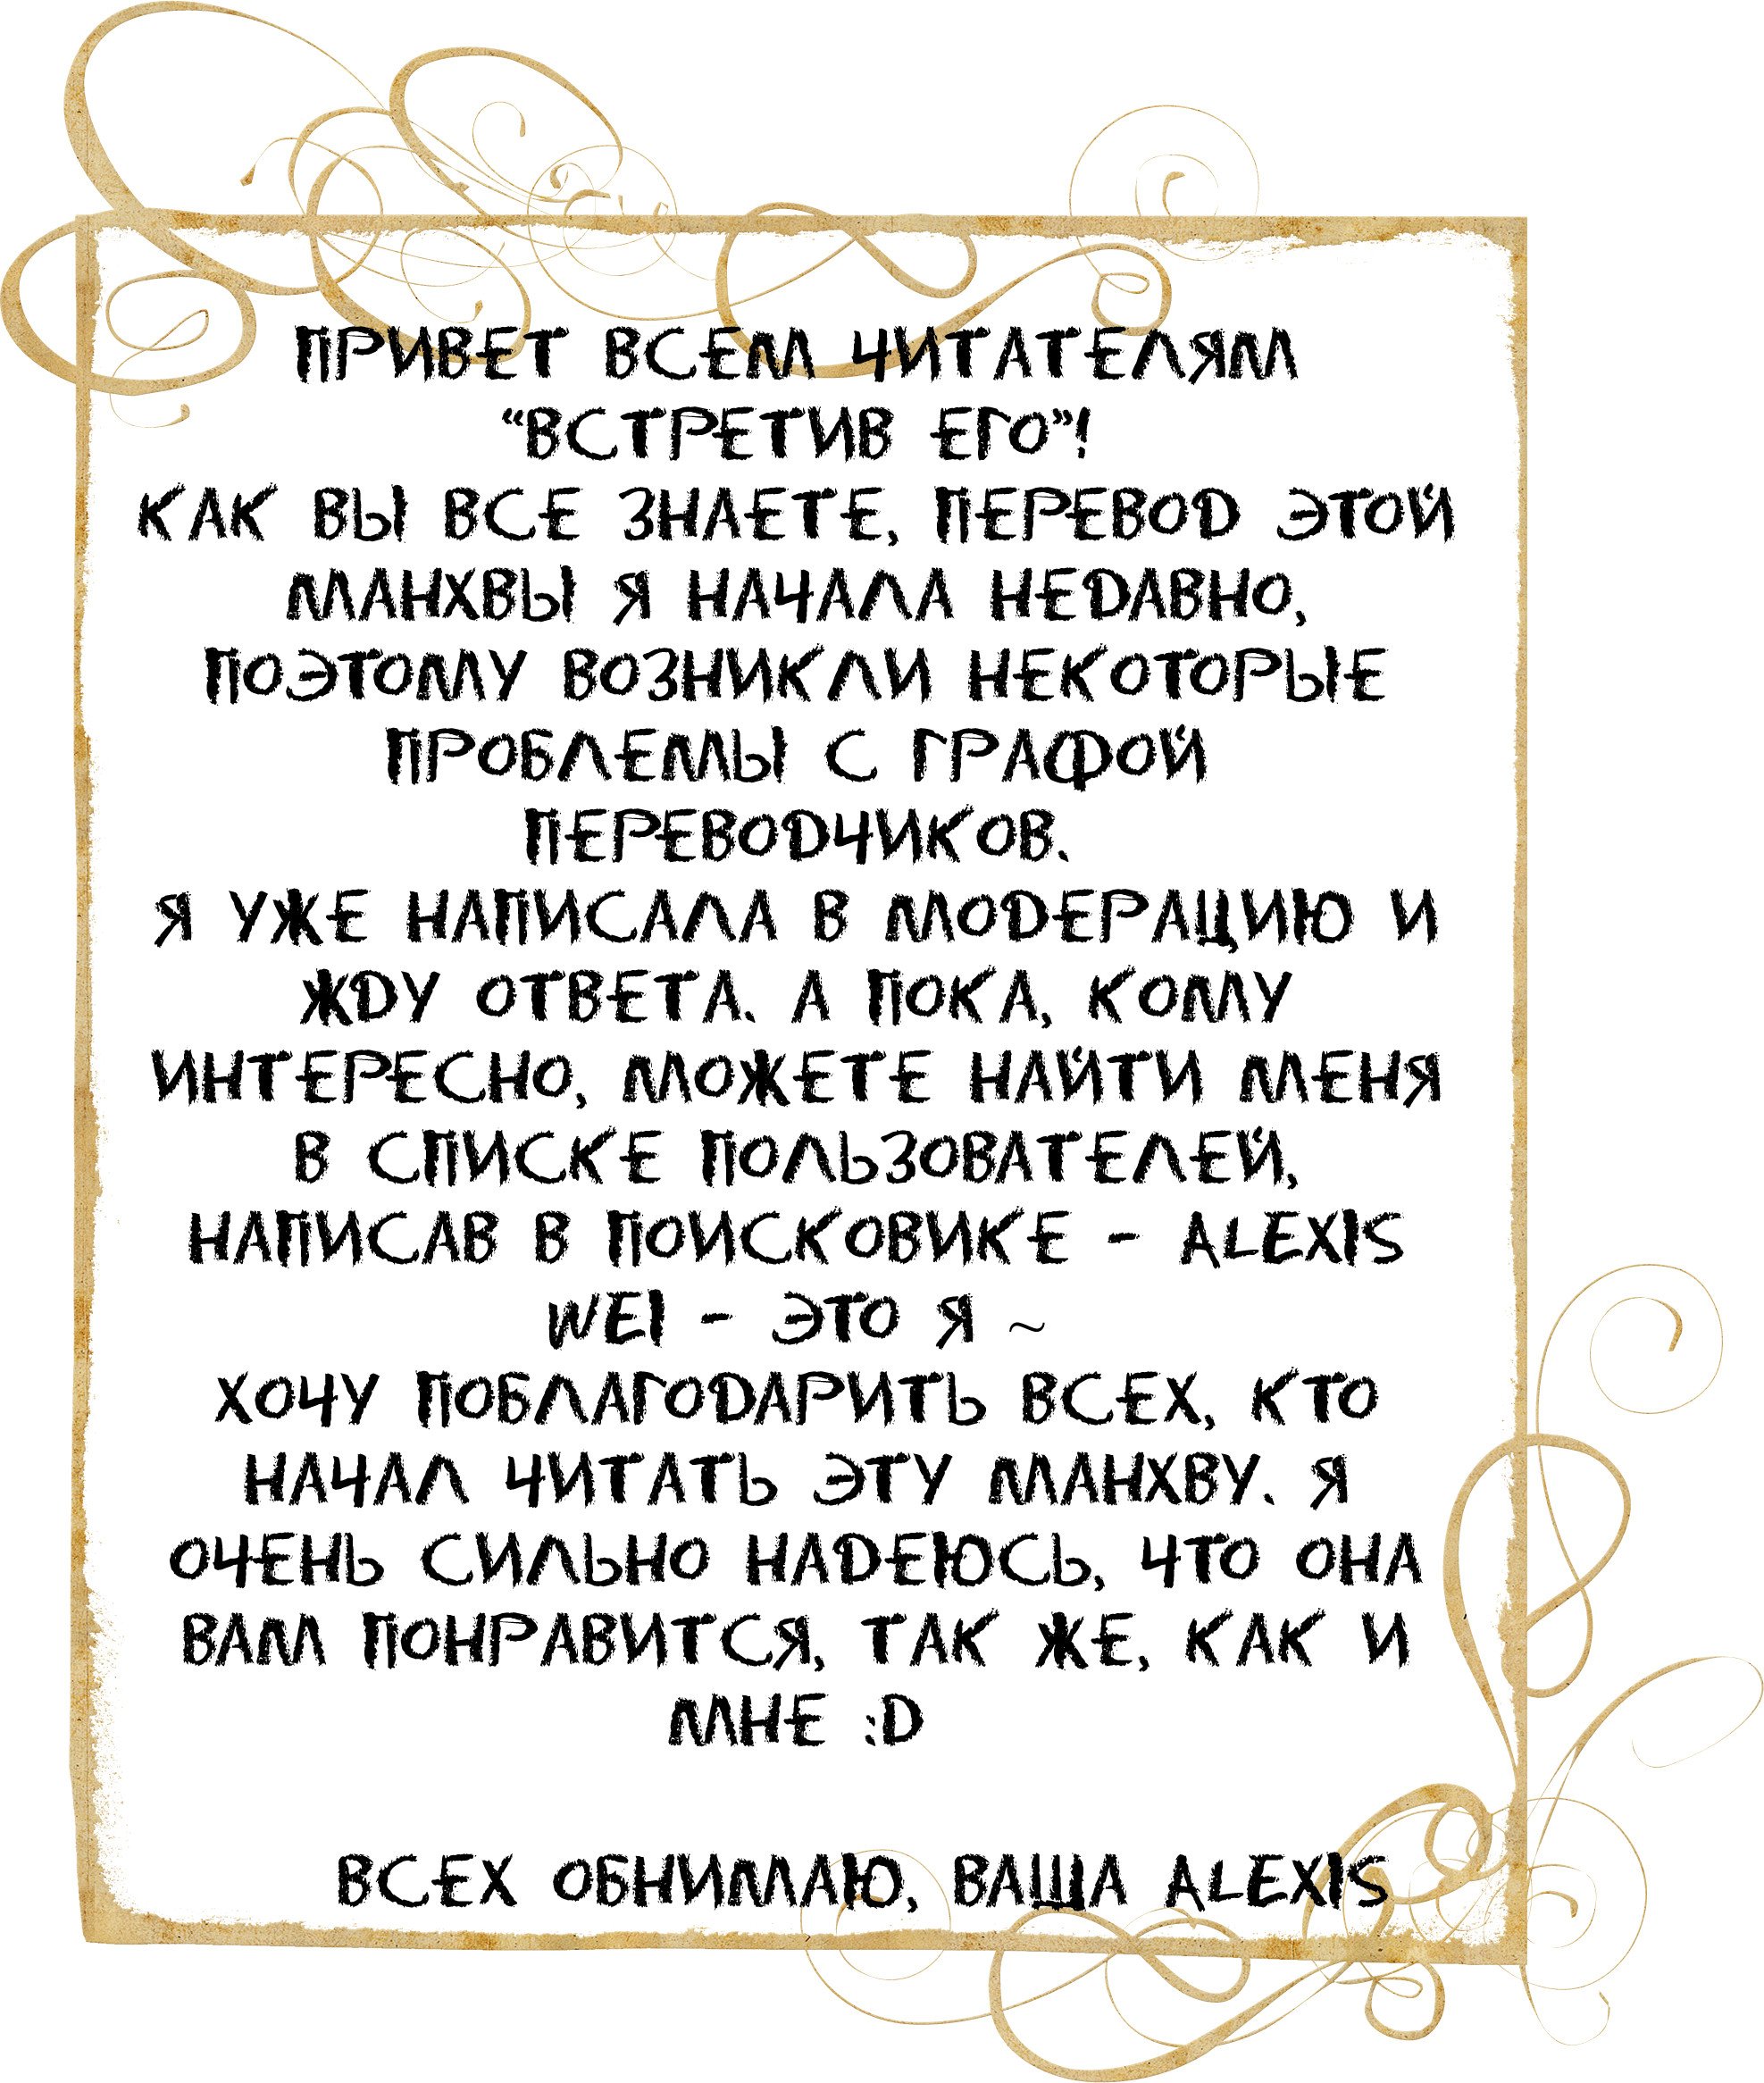 ПРИВЕТ ВСЕМ ЧИТАТЕЛЯМ
“ВСТРЕТИВ ЕГО”!
КАК ВЫ ВСЕ ЗНАЕТЕ, ПЕРЕВОД ЭТОЙ
МАНХВЫ Я НАЧАЛА НЕДАВНО,
ПОЭТОМУ ВОЗНИКЛИ НЕКОТОРЫЕ
ПРОБЛЕМЫ С ГРАФОЙ
ПЕРЕВОДЧИКОВ.
Я УЖЕ НАПИСАЛА В МОДЕРАЦИЮ И
ЖДУ ОТВЕТА. А ПОКА, КОМУ
ИНТЕРЕСНО, МОЖЕТЕ НАЙТИ МЕНЯ
В СПИСКЕ ПОЛЬЗОВАТЕЛЕЙ,
НАПИСАВ В ПОИСКОВИКЕ - ALEXIS
WEI - ЭТО Я ~
ХОЧУ ПОБЛАГОДАРИТЬ ВСЕХ, КТО
НАЧАЛ ЧИТАТЬ ЭТУ МАНХВУ. Я
ОЧЕНЬ СИЛЬНО НАДЕЮСЬ, ЧТО ОНА
ВАМ ПОНРАВИТСЯ, ТАК ЖЕ, КАК И
МНЕ :D
ВСЕХ ОБНИМАЮ, ВАША ALEXIS